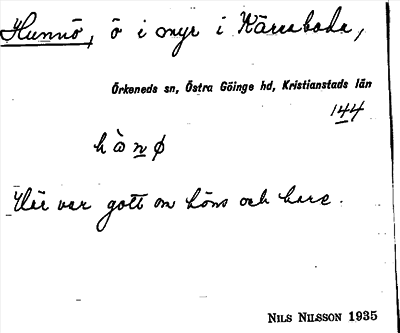 Hunnö, ö i myr i Kärraboda,
Örkeneds sn, Östra Göinge hd, Kristianstads län
144
Här var gott om höns och hare.
NILS NILSSON 1935